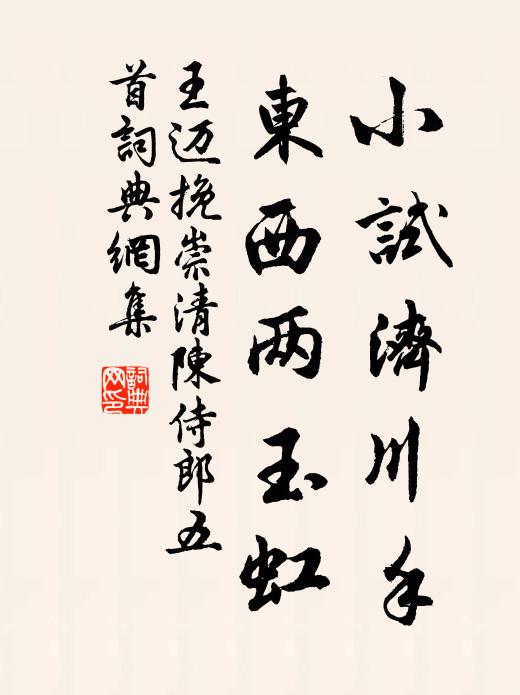 小試濟川手
東西两玉虹
王迈挽崇清陳侍郎五
首詞典網集
詞典
网印